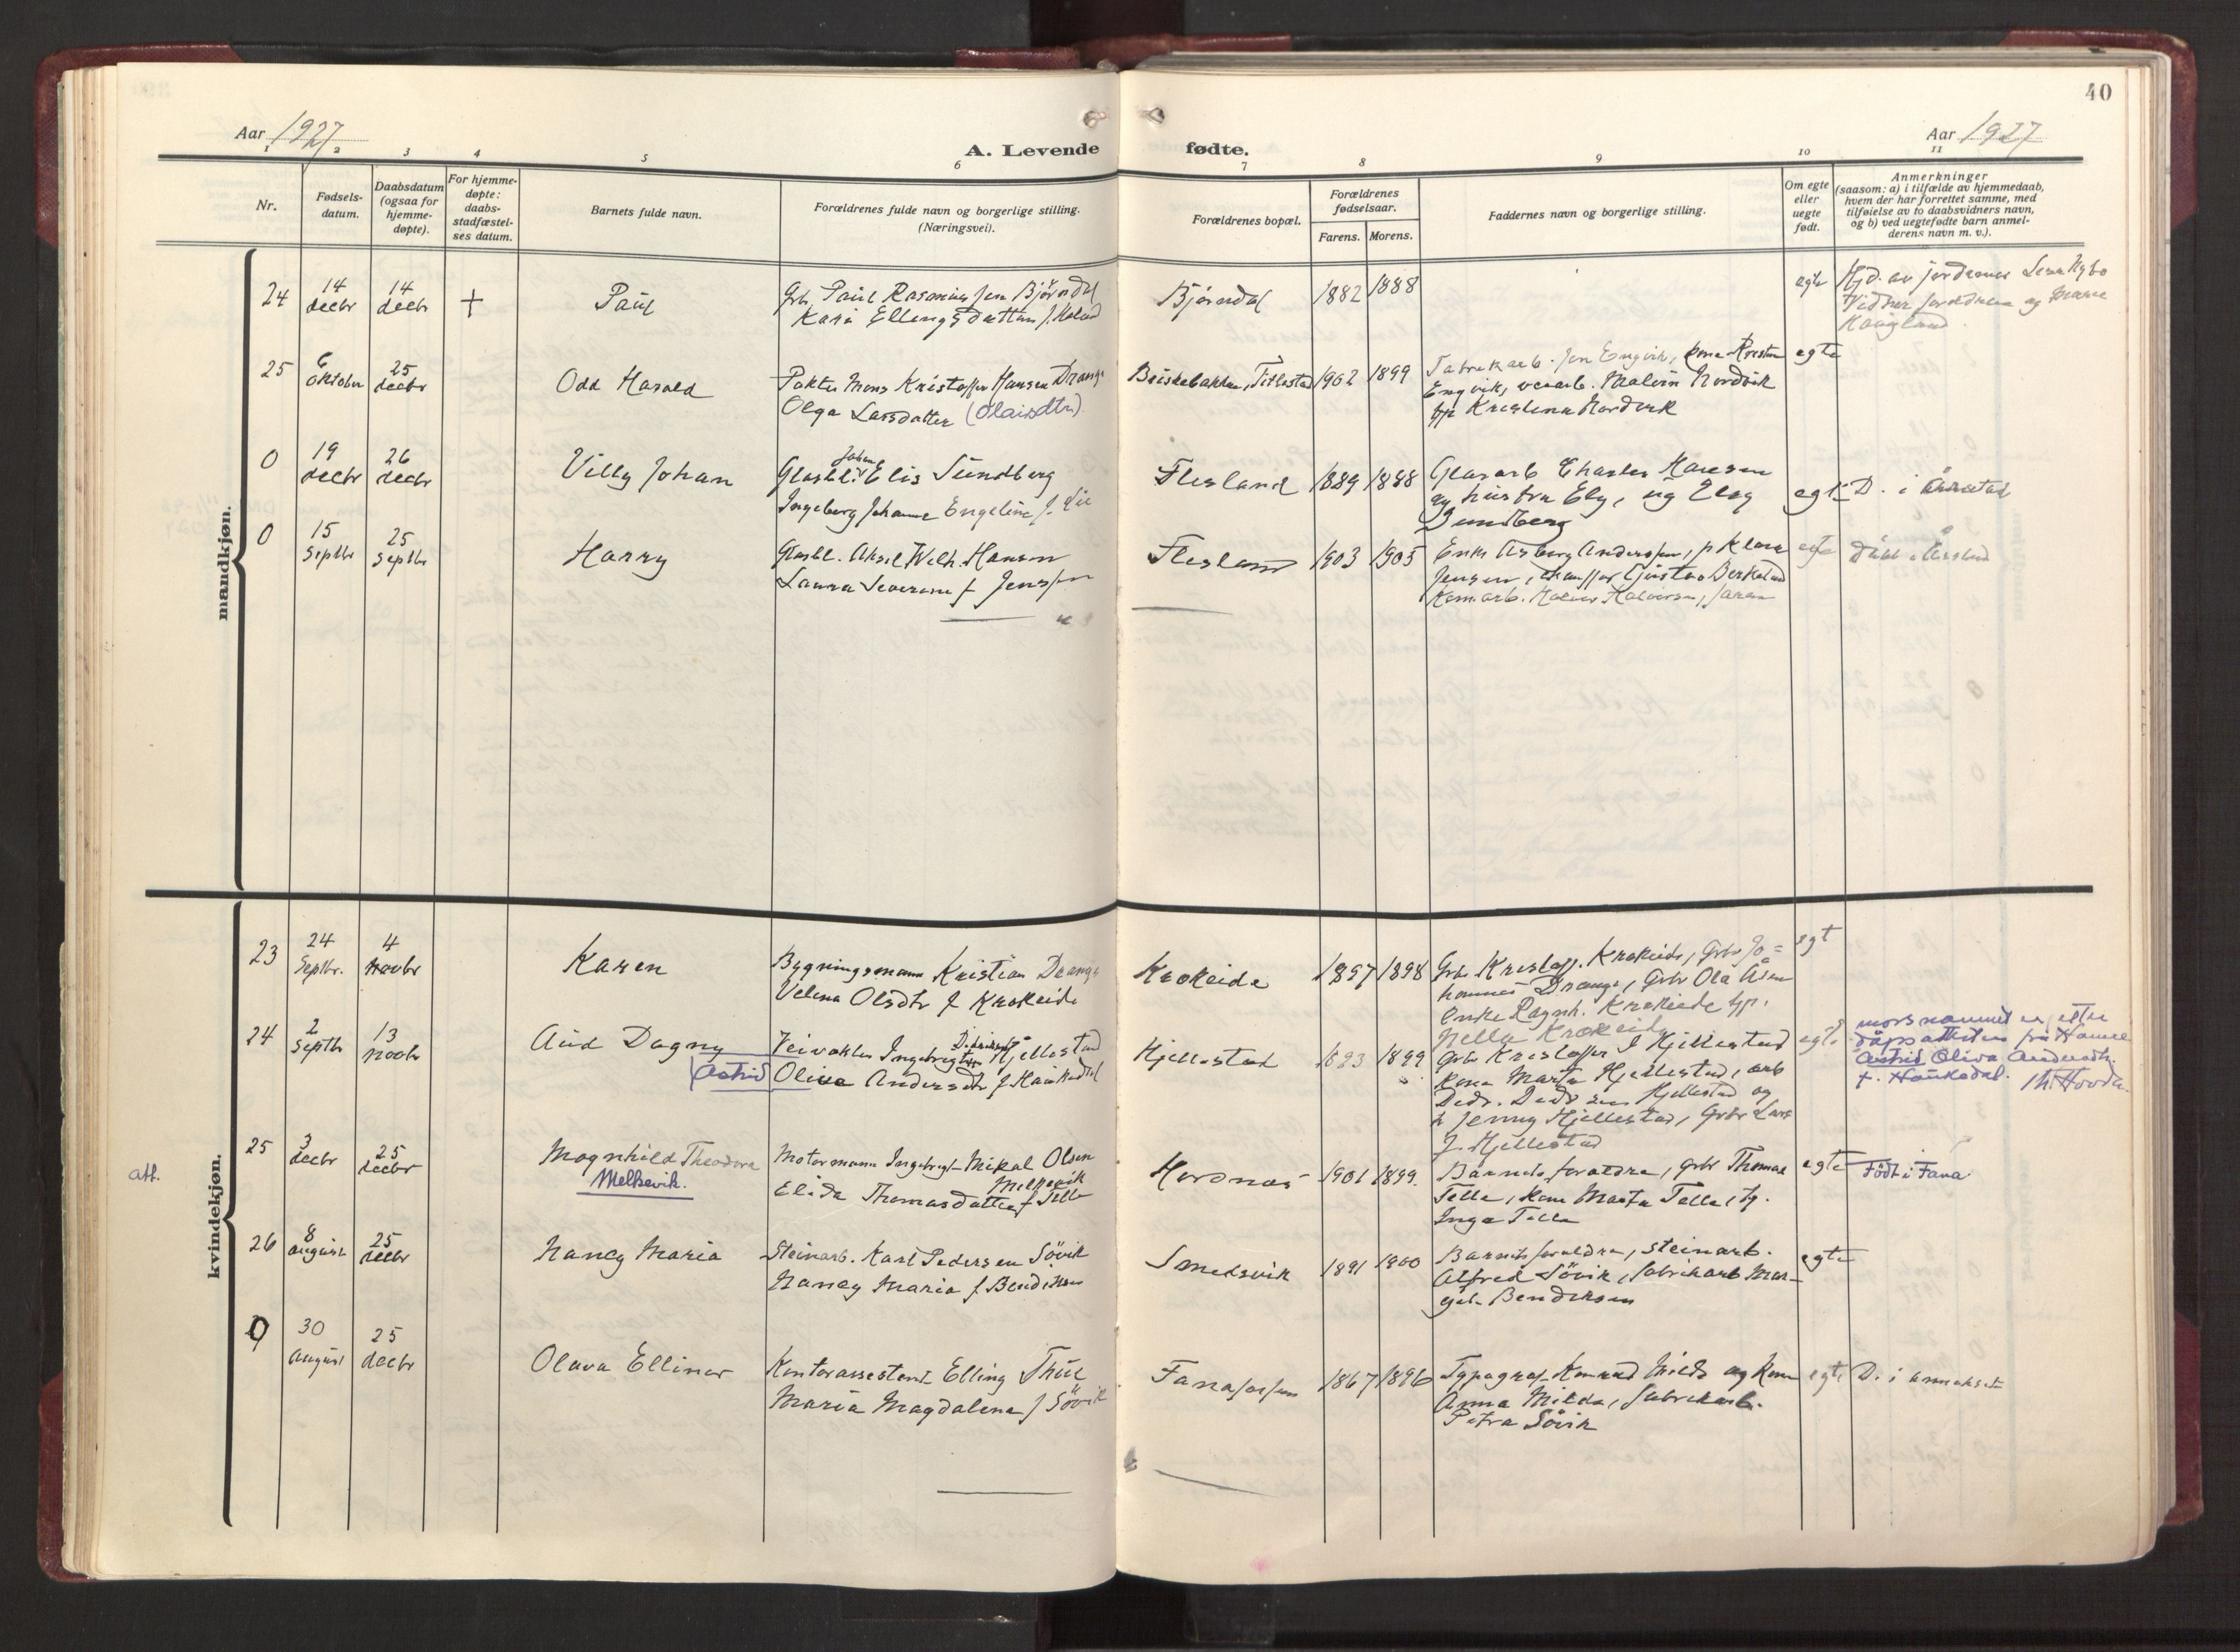 40
Aar 1927
A. Levende
fødte.
Aar 1927
1 2 3 4 5 6 7 8 9 10 11
Nr.
Fødsels-
datum.
Daabsdatum
(ogsaa for
hjemme-
døpte).
For hjemme-
døpte:
daabs-
stadfæstel-
ses datum.
Barnets fulde navn.
Forældrenes fulde navn og borgerlige stilling.
(Næringsvei).
Forældrenes bopæl.
Forældrenes
fødselsaar.
Farens. Morens.
Faddernes navn og borgerlige stilling.
Om egte
eller
uegte
født.
Anmerkninger
(saasom: a) i tilfælde av hjemmedaab,
hvem der har forrettet samme, med
tilføielse av to daabsvidners navn,
og b) ved uegtefødte barn anmel-
derens navn m. v.).
mandkjøn.
24
14
decbr
14
decbr
+
Paul
Grb. Paul Rasmussen Bjørndal
Kari Ellingsdatter f.
Bjørndal
1882 1888
egte
Hjd. av jordemor
Vidner foreldrene og Marie
Haugland
25
6
oktober
25
decbr
Odd Harald
Mons Kristoffer Hansen Drange
Olga Larsdatter (Olaisdtr)
1902 1899
Fabrikarb. Jon Engvik, kona Kristine
Engvik, veiarb. Malvin Nordvik
tjp Kristina Nordvik
egte
0
19
decbr
26
decbr
Villy Johan
Johan
Glasbl. Elis Sundberg
Ingeborg Johanne Engeline f. Lie
Flesland
1889 1888
Glasarb Charles Hansen
og hustru Ely, og Elsy
Sundberg
egte
D. i Årstad
0
15
Septbr
25
Septbr
Harry
Glasbl. Aksel Wilh. Hansen
Laura Severine f Jenssen
Flesland
1903 1905
Enke Asberg Anderssen, p Klara
Jensen, chauffør Gustav Berkeland
Kom.arb. Halvor Halvorsen, faren
egte
Døbt i Årstad
kvindekjøn.
23
24
Septbr.
4
Novbr
Karen
Bygningsmann Kristian Drange
Velina Olsdtr f Krokeide
Krokeide
1897 1898
Grb. Kristoff. Krokeide, Grbr Jo=
hannes Drange, Grbr Ola Åsen
Enke Ragnh. Krokeide tjp.
Nella Krokeide
egt
24
2
Septbr
13
Novbr
Aud Dagny
Veivokter Ingebrigt Hjellestad
(Astrid) Olive Andersdtr f Haukedal
Hjellestad
1893 1899
Grbr Kristoffer J Hjellestad
Kona Marta Hjellestad, arb
Dedr. Hjellestad og
p Jenny Hjellestad, Grbr Lars
J. Hjellestad
egte
morsnavnet er etter
dåpsattesten frå Hamre
Astrid Oliva Andersdtr.
f. Haukedal. Th. Hovda.
att.
25
3
decbr
25
decbr
Magnhild Theodora
Melkevik.
Motormann Ingebrigt Mikal Olsen
Melkevik
Elida Thomasdatter f Telle
Hordnæs
1901 1899.
Barnets foreldre, Grbr Thomas
Telle, kona Marta Telle, tj.
Inga Telle
egte
Født i Fana
26
8
august
25
decbr
Nancy Maria
Steinarb. Karl Pedersen Søvik
Nancy Maria f Bendiksen
Smedsvik
1891 1900
Barnets foreldre, steinarb.
Alfred Søvik, fabrikarb Mar-
grete Bendiksen
egte
0
30
August
25
decbr
Olava Ellinor
Kontorassistent Elling Thue
Maria Magdalena f Søvik
Fanafossen
1867 1896
Typograf Konrad Milde og kona
Anna Milde, fabrikarb.
Petra Søvik
egte
D. i annekset